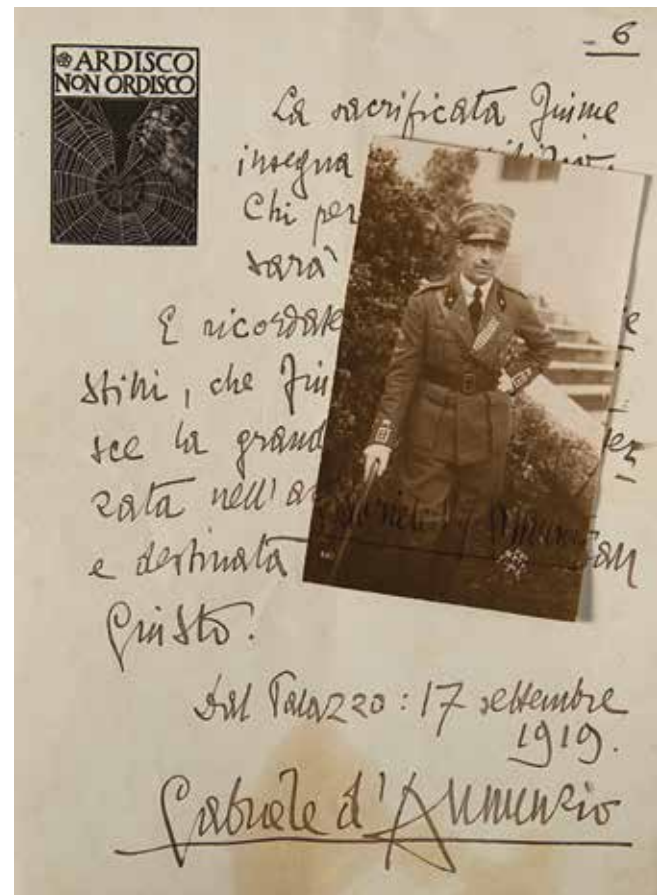 - 6
ARDISCO
NON ORDISCO
La sacrificata Fiume
insegna
Chi per
sarà
E ricordate
stini, che Fiu
sce la grand
zata nell'a
e destinata San
Giusto.
Dal Palazzo: 17 settembre
1919.
Gabriele d'Annunzio